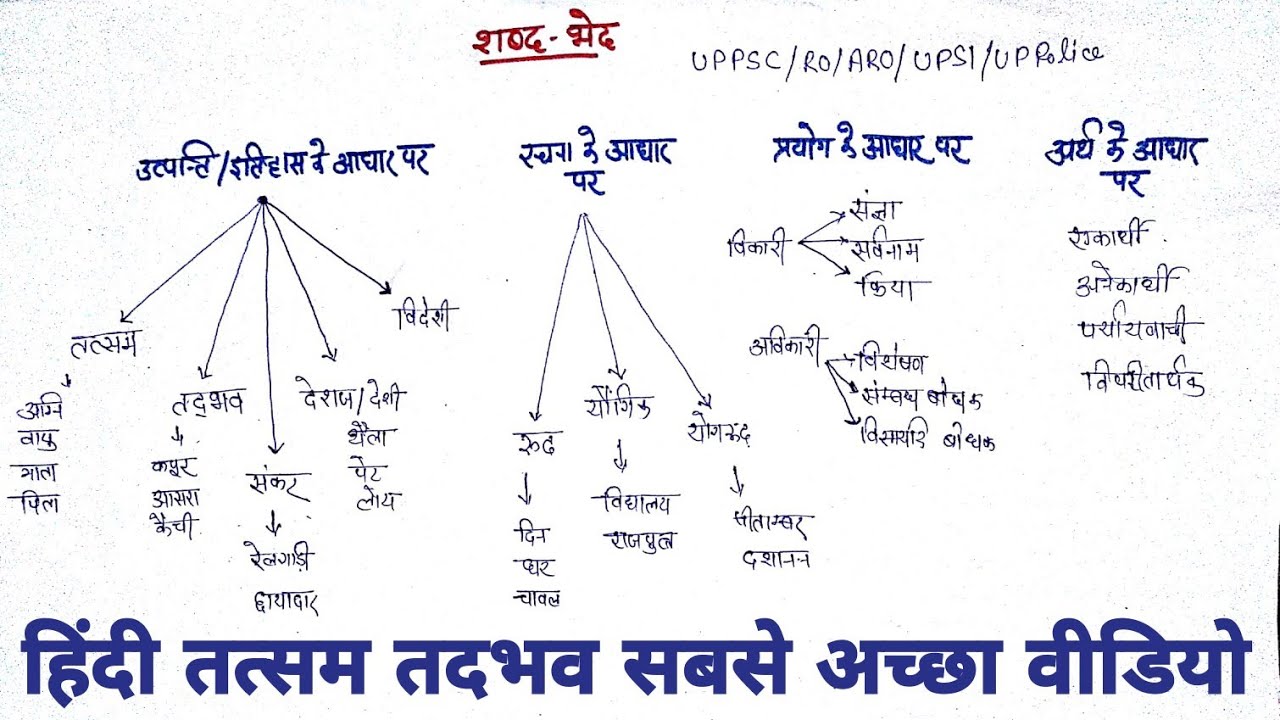 शब्द-भेद
UPPSC/RO/ARO/UPSI/UP Police
उत्पत्ति/इतिहास के आधार पर
तत्सम
अग्नि
वायु
माता
पिता
तद्भव
कपूर
आसरा
कैंची
संकर
रेलगाड़ी
छायादार
देशज/देशी
थैला
पेट
विदेशी
रचना के आधार
पर
रूढ
दिन
घर
चावल
यौगिक
विद्यालय
राजपुत्र
योगरूढ
पीताम्बर
दशानन
प्रयोग के आधार पर
विकारी
संज्ञा
सर्वनाम
क्रिया
अविकारी
विशेषण
संम्बन्ध बोधक
बोधक
अर्थ के आधार
पर
एकार्थी
अनेकार्थी
पर्यायवाची
विपरीतार्थक
हिंदी तत्सम तदभव सबसे अच्छा वीडियो